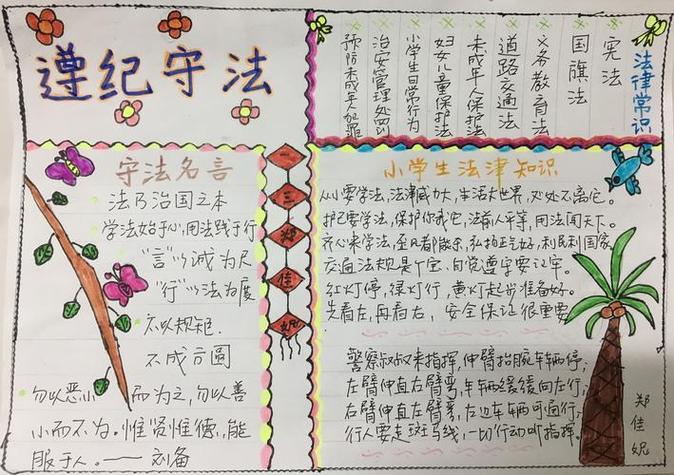 遵纪守法
法律常识
宪法
国旗法
义务教育法
道路交通法
未成年人保护法
妇女儿童保护法
小学生日常行为
治安管理处罚
预防未成年人犯罪
守法名言
法乃治国之本
学法始于心,用法践于行
“言”以诚为尺
“行”以法为度
不以规矩
不成方圆
勿以恶小 而为之,勿以善
小而不为,惟贤惟德,能
服于人。——刘备
一
三
郑
佳
妮
小学生法津知识
从小要学法,法津威力大,生活大世界,处处不离它。
护已要学法,保护你我它,法前人平等,用法闯天下。
齐心来学法,
弘扬正气好,利民利国家
交通法规是个宝,自觉遵守要记牢。
红灯停,绿灯行,黄灯起步准备好。
先看左,再看右,安全保证很重要
警察叔叔来指挥,伸臂抬腕车辆停;
左臂伸直右臂弯,车辆缓缓向左行;
右臂伸直左臂弯,右边车辆可通行;
行人要走斑马线,一切行动听指挥。
郑佳妮